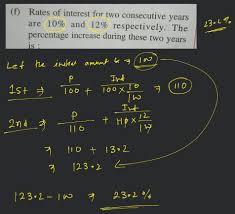 (f) Rates of interest for two consecutive years
are 10% and 12% respectively. The
percentage increase during these two years
is :
23.2%
Let the amount is → 100
1st → P 100 + Int 100 × 10/100 → 110
2nd → P 110 + Int 110 × 12/100
→ 110 + 13.2
→ 123.2
123.2 - 100 → 23.2%